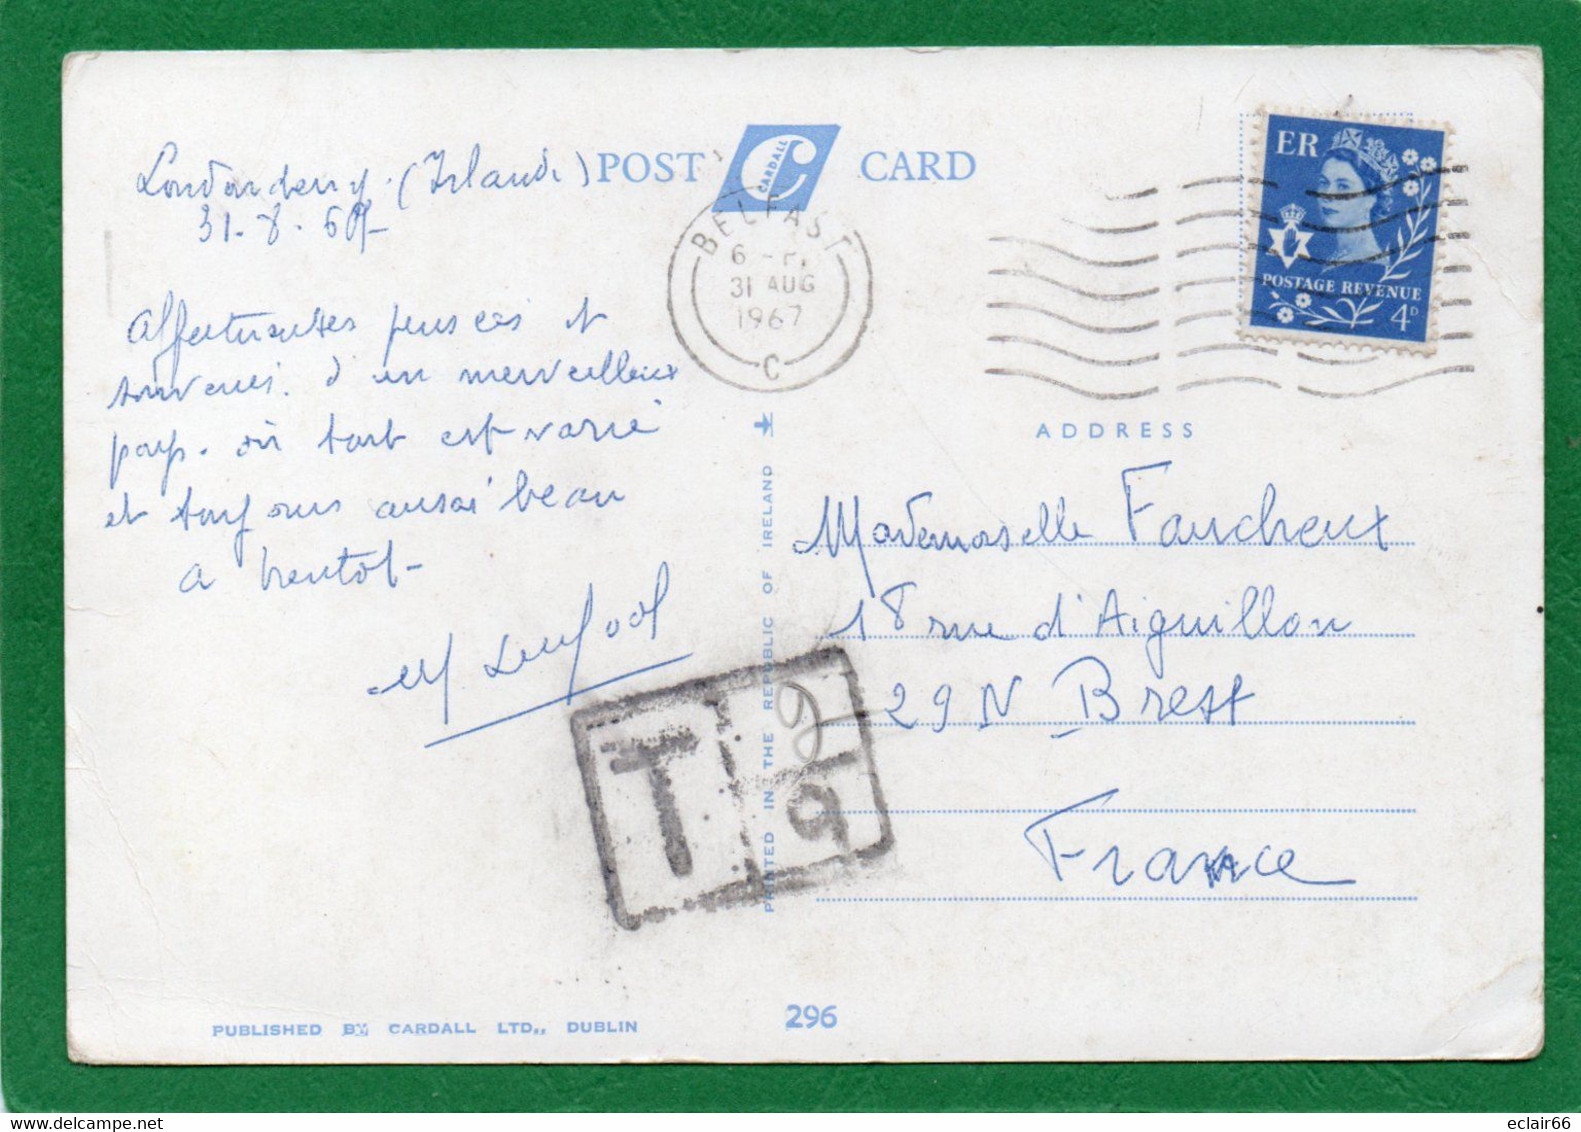 Londonderry. (Irlande)
31-8-67-
Affectueuses pensées et
souvenirs. d'un merveilleux
pays. où tout est varié
et toujours aussi beau
a bientot-
POST CARD
CARDALL
BELFAST
6 - P.
31 AUG
1967
C
ER
POSTAGE REVENUE
4D
ADDRESS
Mademoiselle Faucheux
18 rue d'Aiguillon
29N Brest
France
T
PRINTED IN THE REPUBLIC OF IRELAND
PUBLISHED BY CARDALL LTD., DUBLIN
296
eclair66